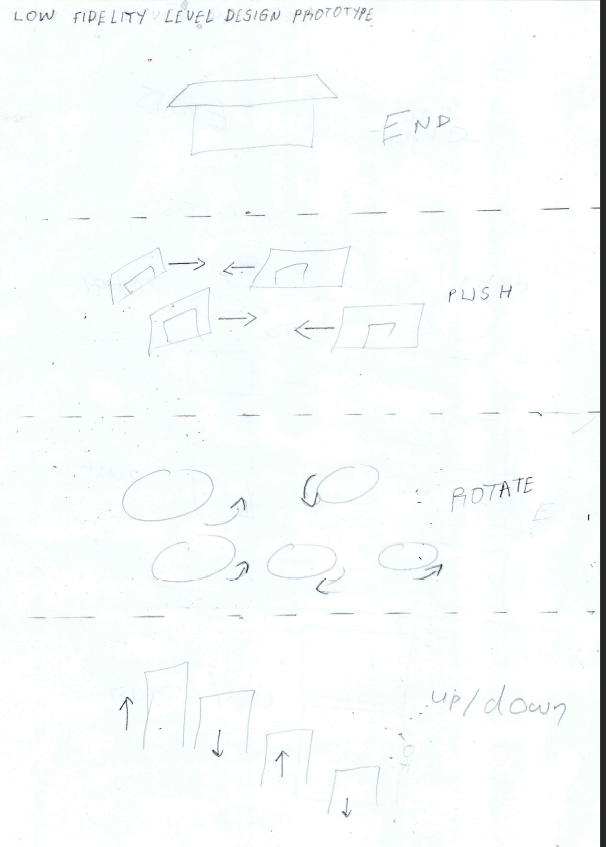 LOW FIDELITY LEVEL DESIGN PROTOTYPE
END
PUSH
ROTATE
up/down